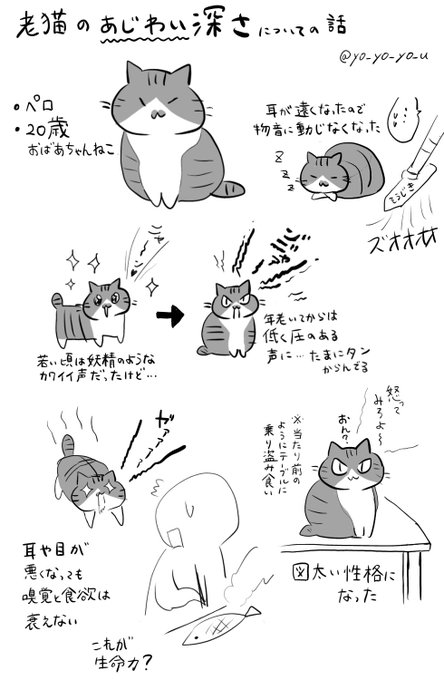 老猫のあじわい深さについての話
@yo_yo_yo_u
・ペロ
・20歳
おばあちゃんねこ
耳が遠くなったので
物音に動じなくなった
z
z
z
そうじき
ズオオオオ
若い頃は妖精のような
カワイイ声だったけど…
年老いてからは
低く圧のある
声に…たまにタン
からんでる
怒って
みろよ〜
おん?
※当たり前の
ようにテーブルに
乗り盗み食い
図太い性格に
なった
耳や目が
悪くなっても
嗅覚と食欲は
衰えない
これが
生命力?